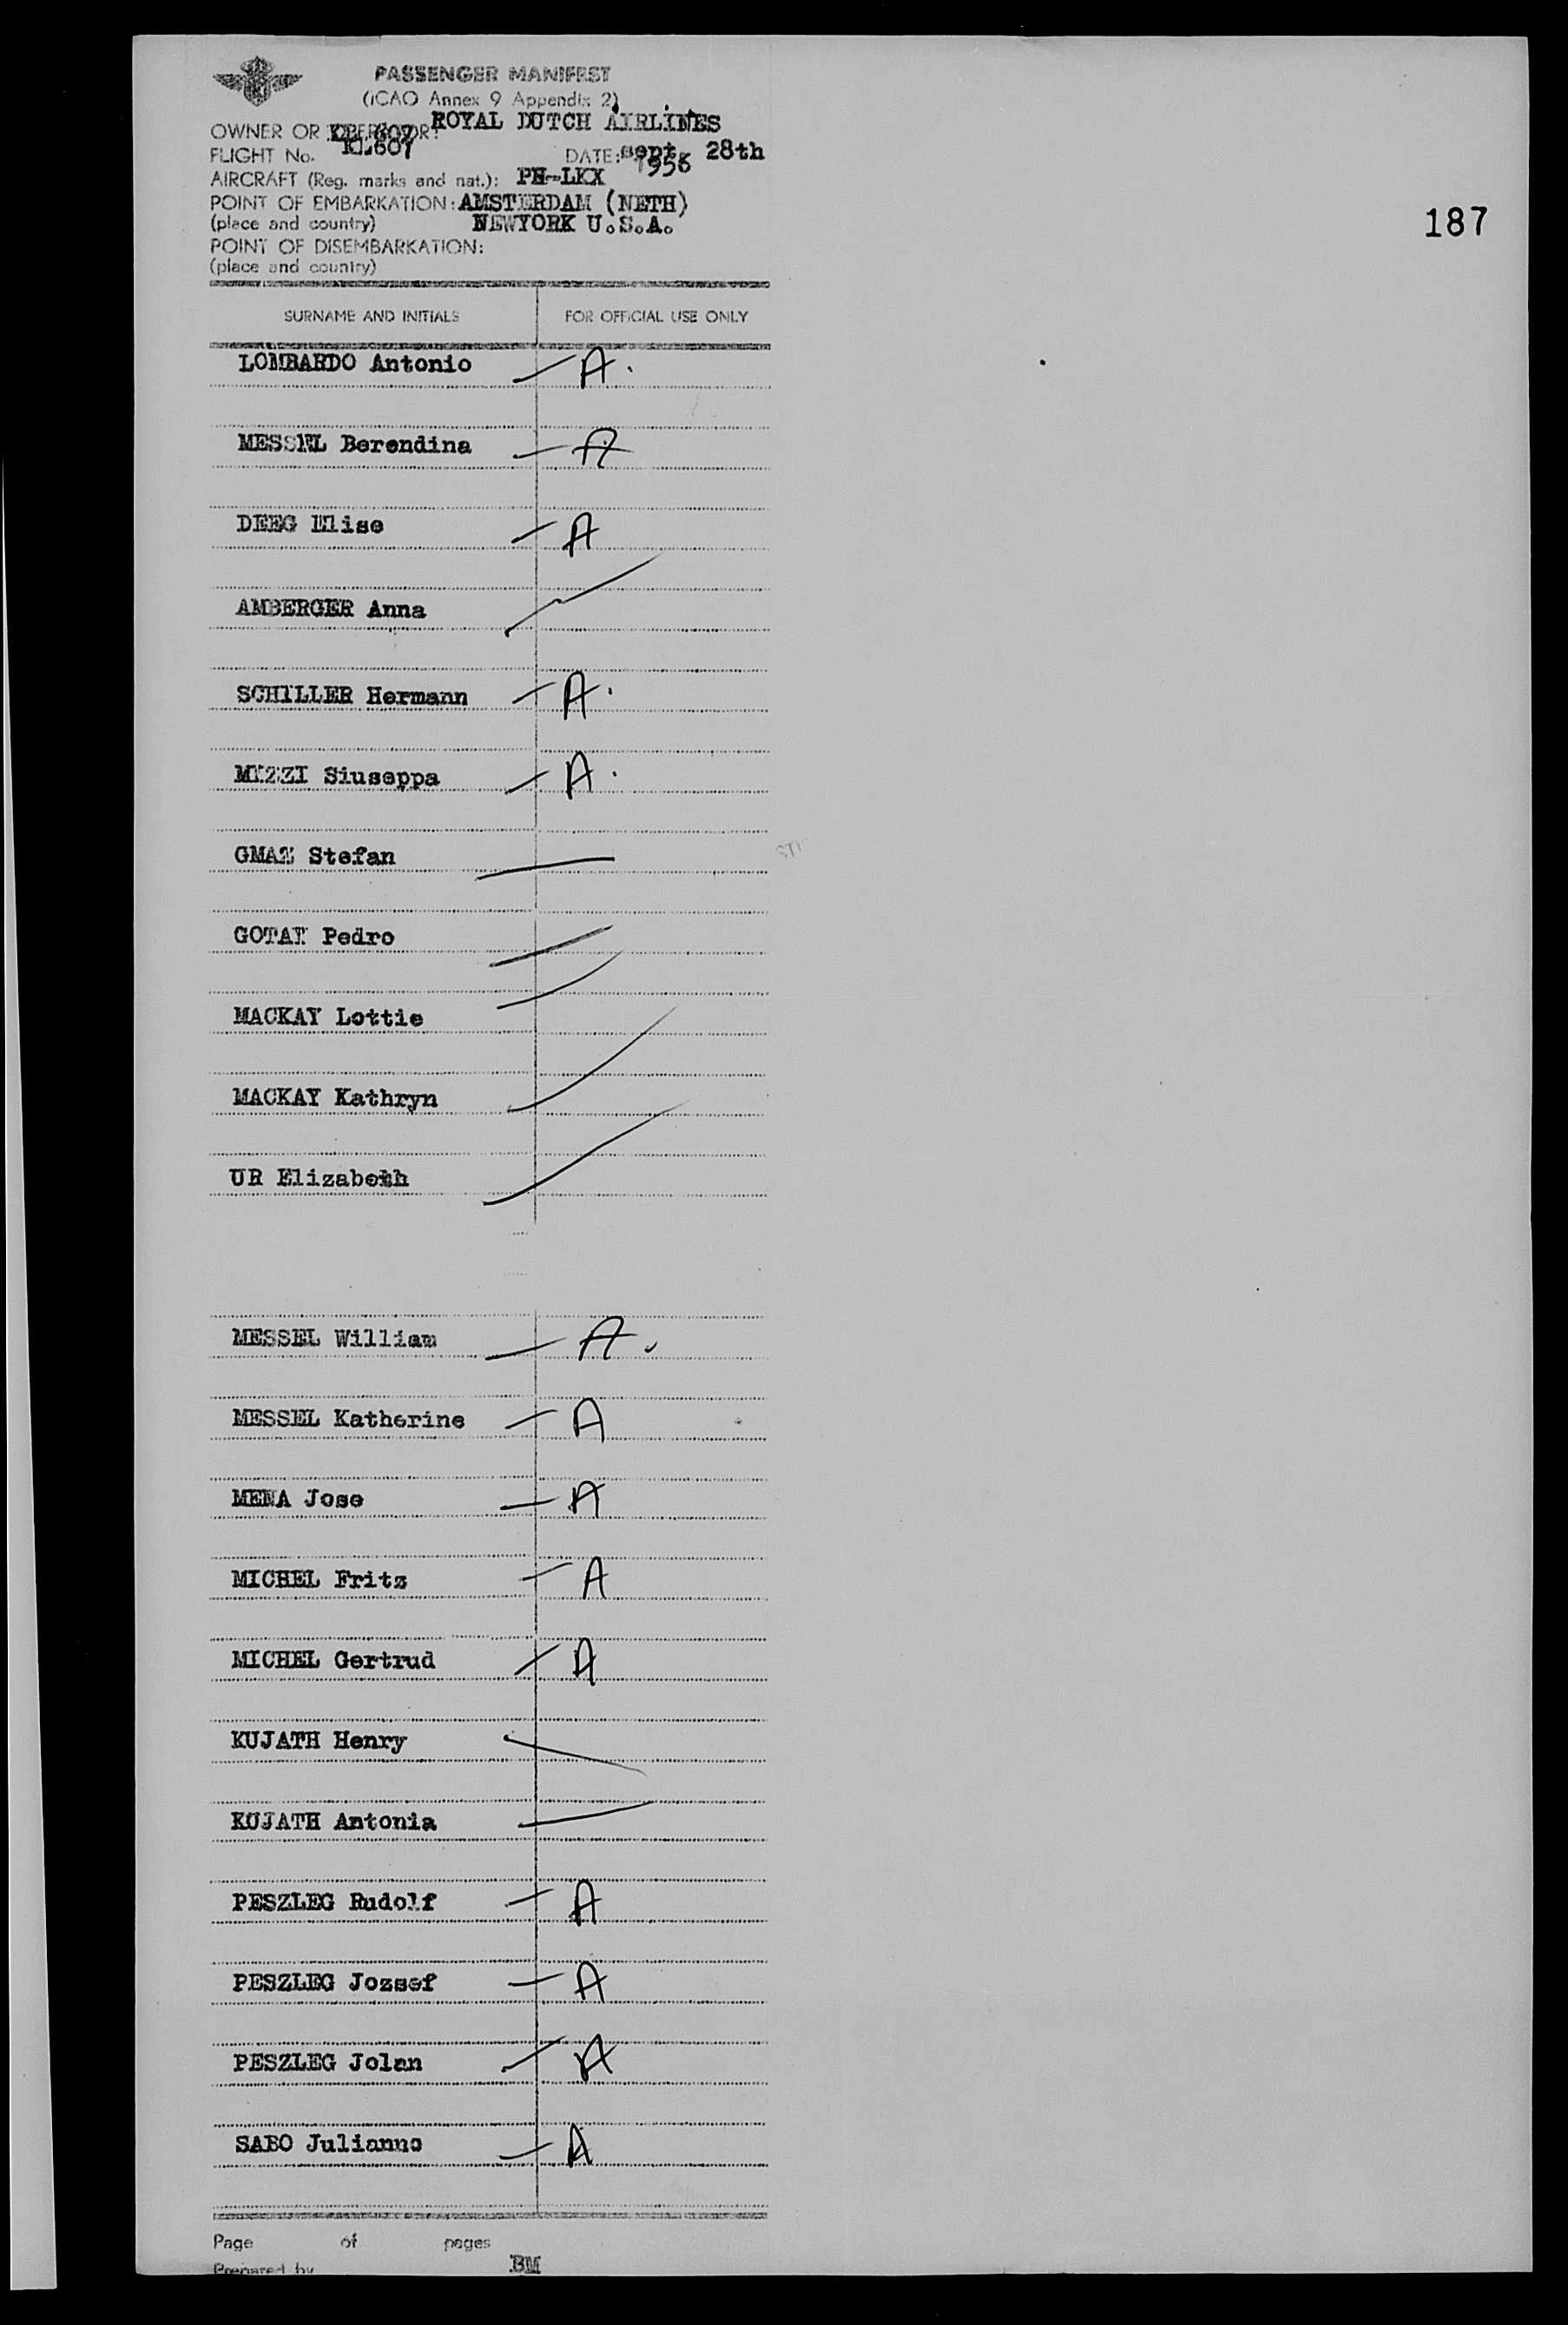 PASSENGER MANIFEST
(ICAO Annex 9 Appendix 2)
OWNER OR OPERATOR: ROYAL DUTCH AIRLINES
FLIGHT No. KL607 DATE: sept. 28th 1956
AIRCRAFT (Reg. marks and nat.): PH-LKX
POINT OF EMBARKATION: AMSTERDAM (NETH)
(place and country) NEWYORK U.S.A.
187
POINT OF DISEMBARKATION:
(place and country)
SURNAME AND INITIALS FOR OFFICIAL USE ONLY
LOMBARDO Antonio A.
MESSEL Berendina A
DEEG Elise A
AMBERGER Anna
SCHILLER Hermann A.
Siuseppa A.
Stefan
Pedro
MACKAY Lottie
MACKAY Kathryn
UR Elizabeth
MESSEL William A.
MESSEL Katherine A
MENA Jose A
MICHEL Fritz A
MICHEL Gertrud A
KUJATH Henry
KUJATH Antonia
PESZLEG Rudolf A
PESZLEG Jozsef A
PESZLEG Jolan A
SABO A
Page of pages
Prepared by BM